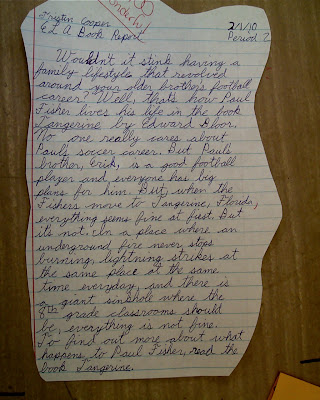 Tristin Cooper
ELA Book Report
2/1/10
Period 2
Wouldn't it stink having a
family lifestyle that revolved
around your older brothers football
career? Well, thats how Paul
Fisher lives his life in the book
Tangerine by Edward Bloor.
No one really cares about
Pauls soccer career. But Pauls
brother, Erick, is a good football
player and everyone has big
plans for him. But, when the
Fishers move to Tangerine, Florida,
everything seems fine at first. But
its not. In a place where an
underground fire never stops
burning, lightning strikes at
the same place at the same
time everyday, and there is
a giant sinkhole where the
8th grade classrooms should
be, everything is not fine.
To find out more about what
happens to Paul Fisher, read the
book Tangerine.